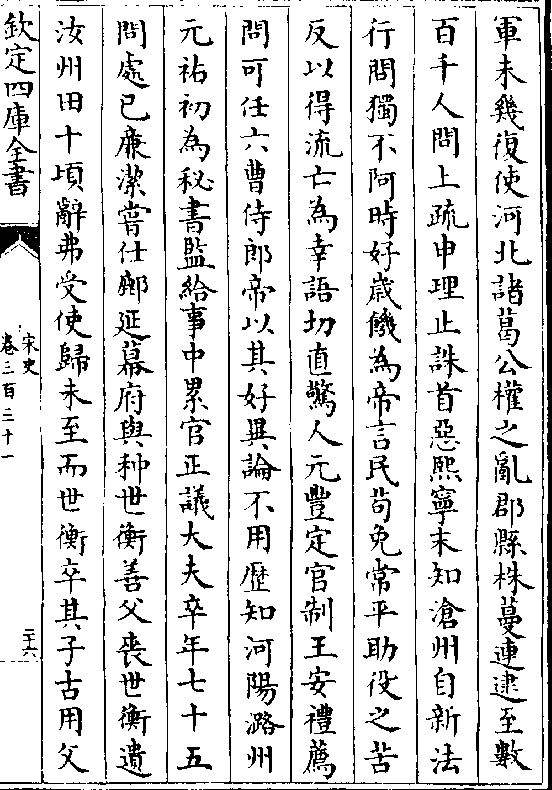 軍未幾復使河北諸葛公權之亂郡縣株蔓連逮至數
百千人問上疏申理止誅首惡熙寧末知滄州自新法
行問獨不阿時好歲饑為帝言民茍免常平助役之苦
反以得流亡為幸語切直驚人元豐定官制王安禮薦
問可任六曹侍郎帝以其好異論不用歴知河陽潞州
元祐初為秘書監給事中累官正議大夫卒年七十五
問處已廉潔嘗仕鄜延幕府與种世衡善父喪世衡遺
汝州田十頃辭弗受使歸未至而世衡卒其子古用父
欽定四庫全書
宋史
卷三百三十一
二十六